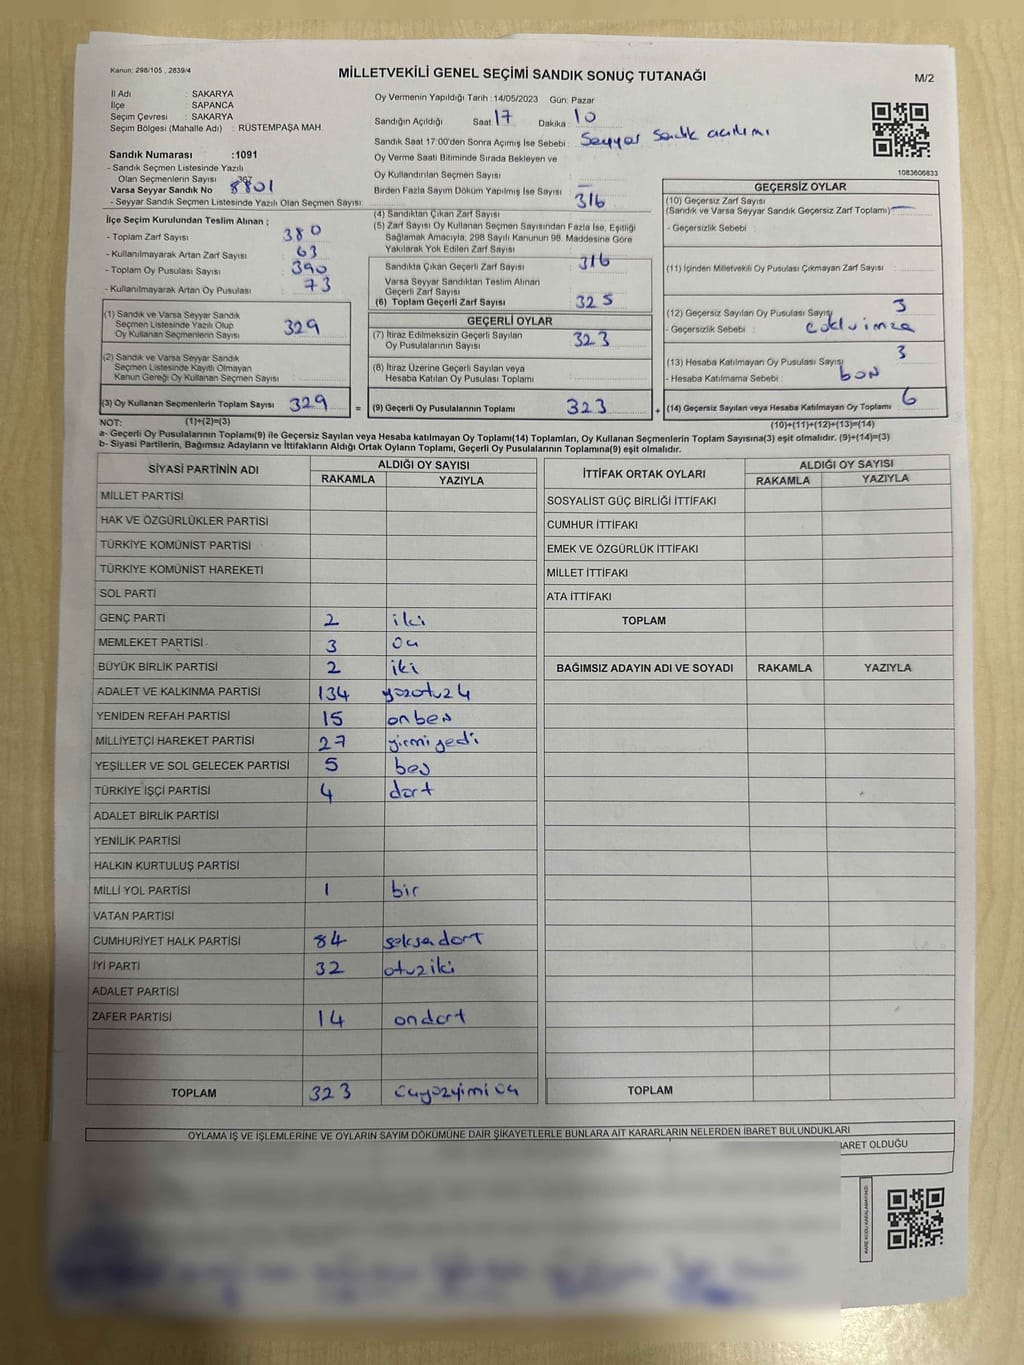 Kanun: 298/105 , 2839/4
MİLLETVEKİLİ GENEL SEÇİMİ SANDIK SONUÇ TUTANAĞI
M/2
İl Adı : SAKARYA
İlçe : SAPANCA
Seçim Çevresi : SAKARYA
Seçim Bölgesi (Mahalle Adı) : RÜSTEMPAŞA MAH.
Sandık Numarası :1091
- Sandık Seçmen Listesinde Yazılı
Olan Seçmenlerin Sayısı : 367
Varsa Seyyar Sandık No 8801
- Seyyar Sandık Seçmen Listesinde Yazılı Olan Seçmen Sayısı:
İlçe Seçim Kurulundan Teslim Alınan ;
- Toplam Zarf Sayısı : 380
- Kullanılmayarak Artan Zarf Sayısı : 63
- Toplam Oy Pusulası Sayısı : 390
- Kullanılmayarak Artan Oy Pusulası : 73
(1) Sandık ve Varsa Seyyar Sandık
Seçmen Listesinde Yazılı Olup
Oy Kullanan Seçmenlerin Sayısı : 329
(2) Sandık ve Varsa Seyyar Sandık
Seçmen Listesinde Kayıtlı Olmayan
Kanun Gereği Oy Kullanan Seçmen Sayısı :
(3) Oy Kullanan Seçmenlerin Toplam Sayısı : 329
Oy Vermenin Yapıldığı Tarih :14/05/2023 Gün: Pazar
Sandığın Açıldığı Saat : 17 Dakika : 10
Sandık Saat 17:00'den Sonra Açımış İse Sebebi : Seyyar Sandık açılımı
Oy Verme Saati Bitiminde Sırada Bekleyen ve
Oy Kullandırılan Seçmen Sayısı :
Birden Fazla Sayım Döküm Yapılmış İse Sayısı : —
(4) Sandıktan Çıkan Zarf Sayısı : 316
(5) Zarf Sayısı Oy Kullanan Seçmen Sayısından Fazla İse, Eşitliği
Sağlamak Amacıyla, 298 Sayılı Kanunun 98. Maddesine Göre
Yakılarak Yok Edilen Zarf Sayısı :
Sandıkta Çıkan Geçerli Zarf Sayısı : 316
Varsa Seyyar Sandıktan Teslim Alınan
Geçerli Zarf Sayısı :
(6) Toplam Geçerli Zarf Sayısı : 325
GEÇERLİ OYLAR
(7) İtiraz Edilmeksizin Geçerli Sayılan
Oy Pusulalarının Sayısı : 323
(8) İtiraz Üzerine Geçerli Sayılan veya
Hesaba Katılan Oy Pusulası Toplamı :
= (9) Geçerli Oy Pusulalarının Toplamı : 323
1083606833
GEÇERSİZ OYLAR
(10) Geçersiz Zarf Sayısı
(Sandık ve Varsa Seyyar Sandık Geçersiz Zarf Toplamı) : —
- Geçersizlik Sebebi :
(11) İçinden Milletvekili Oy Pusulası Çıkmayan Zarf Sayısı :
(12) Geçersiz Sayılan Oy Pusulası Sayısı : 3
- Geçersizlik Sebebi :
(13) Hesaba Katılmayan Oy Pusulası Sayısı : 3
- Hesaba Katılmama Sebebi : boş
+ (14) Geçersiz Sayılan veya Hesaba Katılmayan Oy Toplamı : 6
NOT: (1)+(2)=(3)
(10)+(11)+(12)+(13)=(14)
a- Geçerli Oy Pusulalarının Toplamı(9) ile Geçersiz Sayılan veya Hesaba katılmayan Oy Toplamı(14) Toplamları, Oy Kullanan Seçmenlerin Toplam Sayısına(3) eşit olmalıdır. (9)+(14)=(3)
b- Siyasi Partilerin, Bağımsız Adayların ve İttifakların Aldığı Ortak Oyların Toplamı, Geçerli Oy Pusulalarının Toplamına(9) eşit olmalıdır.
SİYASİ PARTİNİN ADI ALDIĞI OY SAYISI
RAKAMLA YAZIYLA
MİLLET PARTİSİ
HAK VE ÖZGÜRLÜKLER PARTİSİ
TÜRKİYE KOMÜNİST PARTİSİ
TÜRKİYE KOMÜNİST HAREKETİ
SOL PARTİ
GENÇ PARTİ 2 iki
MEMLEKET PARTİSİ 3 üç
BÜYÜK BİRLİK PARTİSİ 2 iki
ADALET VE KALKINMA PARTİSİ 134 yüzotuz4
YENİDEN REFAH PARTİSİ 15 onbeş
MİLLİYETÇİ HAREKET PARTİSİ 27 yirmi yedi
YEŞİLLER VE SOL GELECEK PARTİSİ 5 beş
TÜRKİYE İŞÇİ PARTİSİ 4 dört
ADALET BİRLİK PARTİSİ
YENİLİK PARTİSİ
HALKIN KURTULUŞ PARTİSİ
MİLLİ YOL PARTİSİ 1 bir
VATAN PARTİSİ
CUMHURİYET HALK PARTİSİ 84 seksendört
İYİ PARTİ 32 otuziki
ADALET PARTİSİ
ZAFER PARTİSİ 14 ondört
TOPLAM 323 üçyüzyirmi üç
İTTİFAK ORTAK OYLARI ALDIĞI OY SAYISI
RAKAMLA YAZIYLA
SOSYALİST GÜÇ BİRLİĞİ İTTİFAKI
CUMHUR İTTİFAKI
EMEK VE ÖZGÜRLÜK İTTİFAKI
MİLLET İTTİFAKI
ATA İTTİFAKI
TOPLAM
BAĞIMSIZ ADAYIN ADI VE SOYADI RAKAMLA YAZIYLA
TOPLAM
OYLAMA İŞ VE İŞLEMLERİNE VE OYLARIN SAYIM DÖKÜMÜNE DAİR ŞİKAYETLERLE BUNLARA AİT KARARLARIN NELERDEN İBARET BULUNDUKLARI
İBARET OLDUĞU
KARE KODU KARALAMAYINIZ!